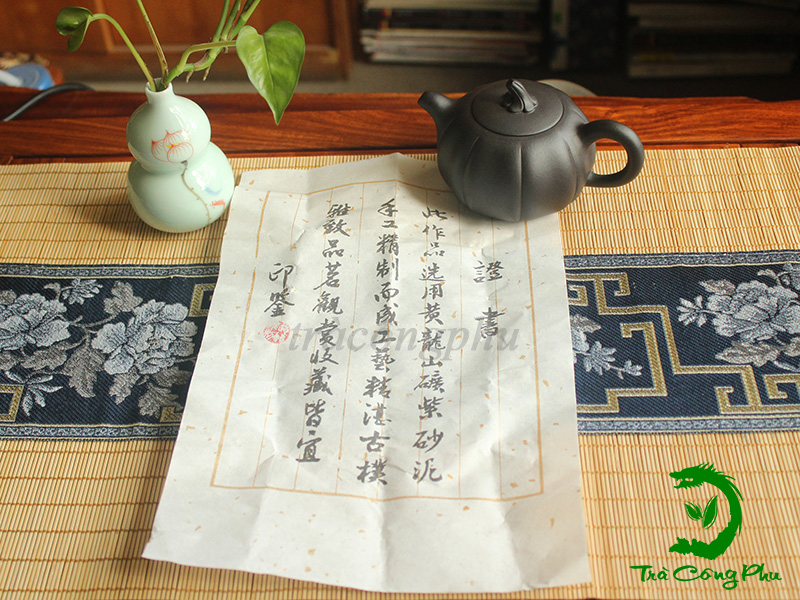 證書
此作品選用黄龍山礦紫砂泥
手工精制而成工藝精湛古樸
雅致品茗觀赏收藏皆宜
印鑒
tracongphu
Trà Công Phu